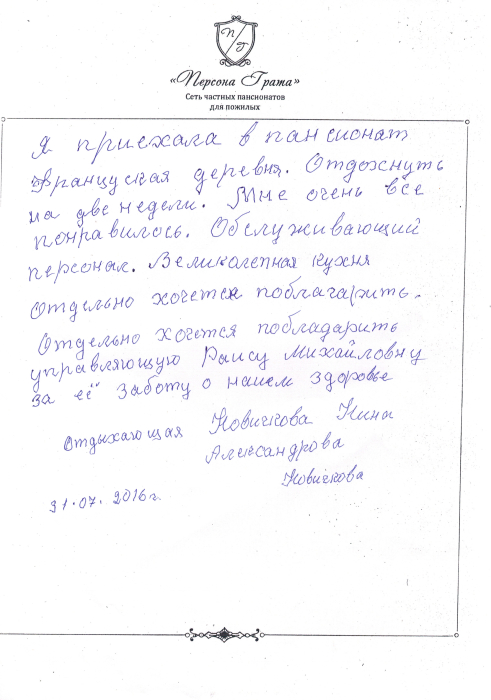 П
Г
«Персона Грата»
Сеть частных пансионатов
для пожилых
Я приехала в пансионат
Француская деревня. Отдохнуть
на две недели. Мне очень все
понравилось. Обслуживающий
персонал. Великолепная кухня
Отдельно хочется поблагарить.
Отдельно хочется побладарить
управляющую Раису Михайловну
за её заботу о нашем здоровье
Отдыхающая Новичкова Нина
Александрова
Новичкова
31.07.2016г.